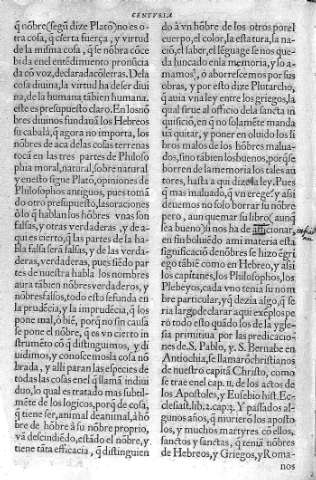 CENTVRIA
q̃ nõbre (segũ dize Platõ) no es o-
tra cosa, q̃ çierta fuerça, y virtud
de la misma cosa, q̃ se nõbra cõce
bida en el entẽdimiento, pronũcia
da cõ voz, declarada cõ letras. De la
cosa diuina, la virtud ha de ser diui
na, de la humana tãbien humana.
este es presupuesto claro. En los nõ
bres diuinos fundauã los Hebreos
su cabalà, q̃ agora no importa, los
nõbres de aca de las cosas terrenas
tocã en las tres partes de Philoso
phia moral, natural, sobre natural
y ne esto sigue Platõ, opiniones de
Philosophos antiguos, pues tomã
do otro presupuesto, las oraciones
õ lo q̃ hablan los hõbres vnas son
falsas, y otras verdaderas, y de a-
qui es cierto, q̃ las partes de la ha-
bla falsa serã falsas, y de la verda-
deras, verdaderas, pues siẽdo par
tes de nuestra habla los nombres
aura tãbien nõbres verdaderos, y
nõbres falsos, todo esto se funda en
la prudẽcia, y la imprudẽcia, q̃ los
pone mal, õ biẽ, porq̃ no sin causa
se pone el nõbre, q̃ es vn cierto in
strumẽto cõ q̃ distinguimos, y di
uidimos, y conoscemos la cosa nõ
brada, y alli paran las especies de
todas las cosas en el q̃ llamã indiui
duo, lo qual es tratado mas subtil-
mẽte de los logicos, porq̃ de cosa,
q̃ tiene ser, animal de animal, a hõ
bre de hõbre à su nõbre proprio,
và descindiẽdo, estãdo el nõbre, y
tiene tãta efficacia, q̃ distinguien
do à vn hõbre de los otros por el
cuerpo, por el color, la estatura, la na
ciõ, el saber, el lẽguage se nos que
da hincado en la memoria, y lo a-
mamos, õ aborrescemos por sus
obras, y por esto dize Plutarcho,
que auia vna ley entre los griegos, la
qual sirue al officio dela sancta in
quisiciõ, en q̃ no solamẽte manda
uã quitar, y poner en oluido los li
bros malos de los hõbres malua-
dos, sino tãbien los buenos, porq̃ se
borren de la memoria los tales au
tores, hasta a qui dize la ley. Pues
q̃ mas maluado, q̃ vn erege? y assi
deuemos no solo borrar su nõbre
pero, aun quemar su libro (aunq̃
sea bueno) si nos ha de cionar,
en fin boluiẽdo a mi materia esta
significaciõ de nõbres se hizo en gri
ego tãbiẽ como en Hebreo, y assi
los capitanes, los Philosophos, los
Plebeyos, cada vno tenia su nom
bre particular, y q̃ dezia algo, q̃ se
ria largo declarar aqui exẽplos pe
ro todo esto quãdo los de la ygle-
sia primitiua por las predicacio-
nes de S. Pablo, y S. Bernabe en
Antiochia, se llamarõ christianos
de nuestro capitã Christo, como
se trae en el cap. 11. de los actos de
los Apostoles, y Eusebio hist. Ec-
clesiast. lib. 2. cap. 3. Y passados al-
gunos años, q̃ murierõ los aposto
les, y muchos martyres cõ ellos,
sanctos y sanctas, q̃ teniã nõbres
de Hebreos, y Griegos, y Roma-
nos